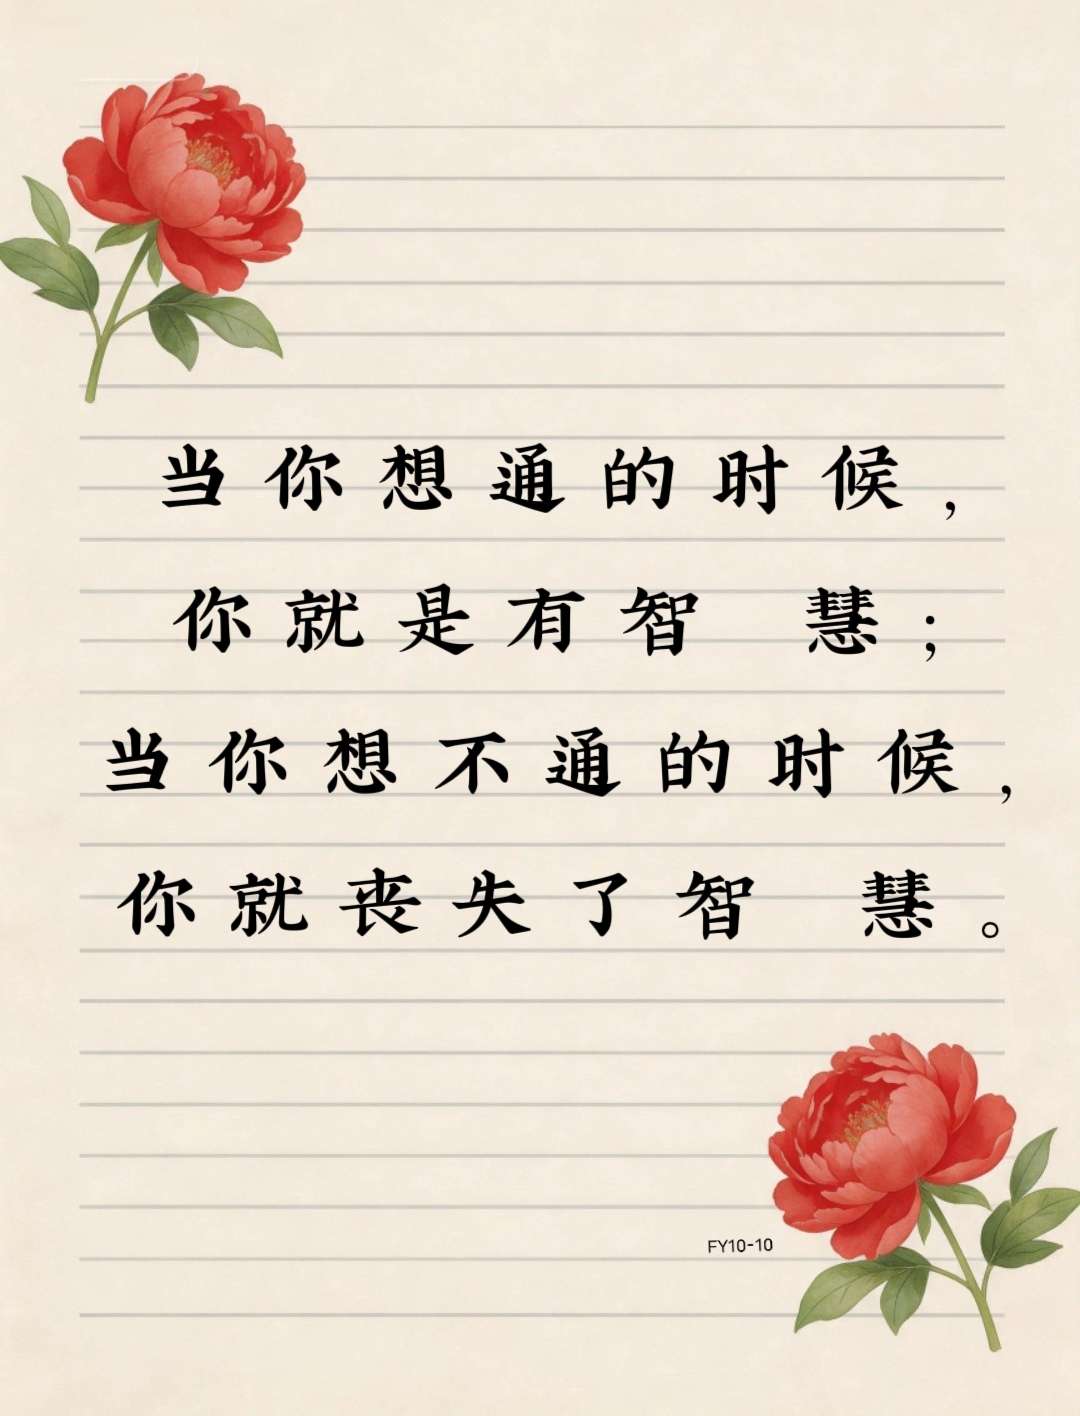 当你想通的时候，
你就是有智 慧；
当你想不通的时候，
你就丧失了智 慧。
FY10-10